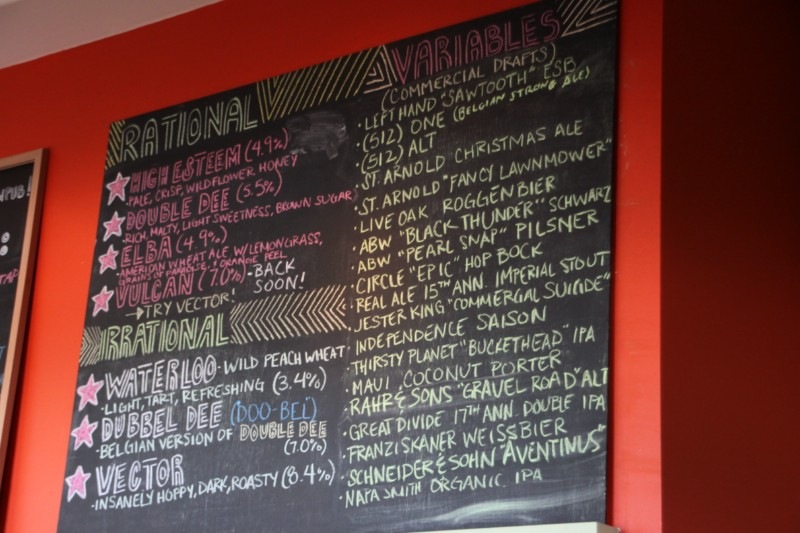 RATIONAL
HIGH ESTEEM (4.9%)
PALE, CRISP, WILDFLOWER HONEY
DOUBLE DEE (5.5%)
RICH, MALTY, LIGHT SWEETNESS, BROWN SUGAR
ELBA (4.9%)
AMERICAN WHEAT ALE W/ LEMONGRASS,
GRAINS OF PARADISE, & ORANGE PEEL
VULCAN (7.0%) - BACK
SOON!
→ TRY VECTOR!
IRRATIONAL
WATERLOO - WILD PEACH WHEAT
- LIGHT, TART, REFRESHING (3.4%)
DUBBEL DEE (DOO-BEL)
- BELGIAN VERSION OF DOUBLE DEE
(7.0%)
VECTOR
- INSANELY HOPPY, DARK, ROASTY (8.4%)
VARIABLES
(COMMERCIAL DRAFTS)
· LEFT HAND "SAWTOOTH" ESB
· (512) ONE (BELGIAN STRONG ALE)
· (512) ALT
· ST. ARNOLD CHRISTMAS ALE
· ST. ARNOLD "FANCY LAWNMOWER"
· LIVE OAK ROGGENBIER
· ABW "BLACK THUNDER" SCHWARZ
· ABW "PEARL SNAP" PILSNER
· CIRCLE "EPIC" HOP BOCK
· REAL ALE 15TH ANN. IMPERIAL STOUT
· JESTER KING "COMMERCIAL SUICIDE"
· INDEPENDENCE SAISON
· THIRSTY PLANET "BUCKETHEAD" IPA
· MAUI COCONUT PORTER
· RAHR & SONS "GRAVEL ROAD" ALT
· GREAT DIVIDE 17TH ANN. DOUBLE IPA
· FRANZISKANER WEISSBIER
· SCHNEIDER & SOHN "AVENTINUS"
· NAPA SMITH ORGANIC IPA